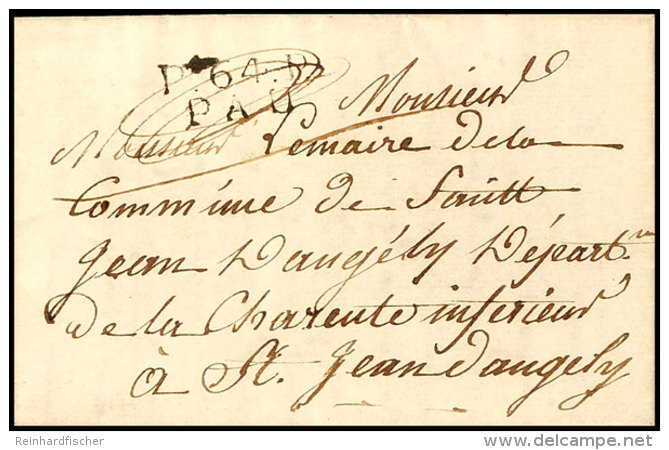 P. 64. P.
PAU
Monsieur
Monsieur Lemaire de la
Commune de Saintt
Jean Dangély Départ.
de la Charente inferieur
à St. Jean dangely
Reinhardfischer
delcampe.net